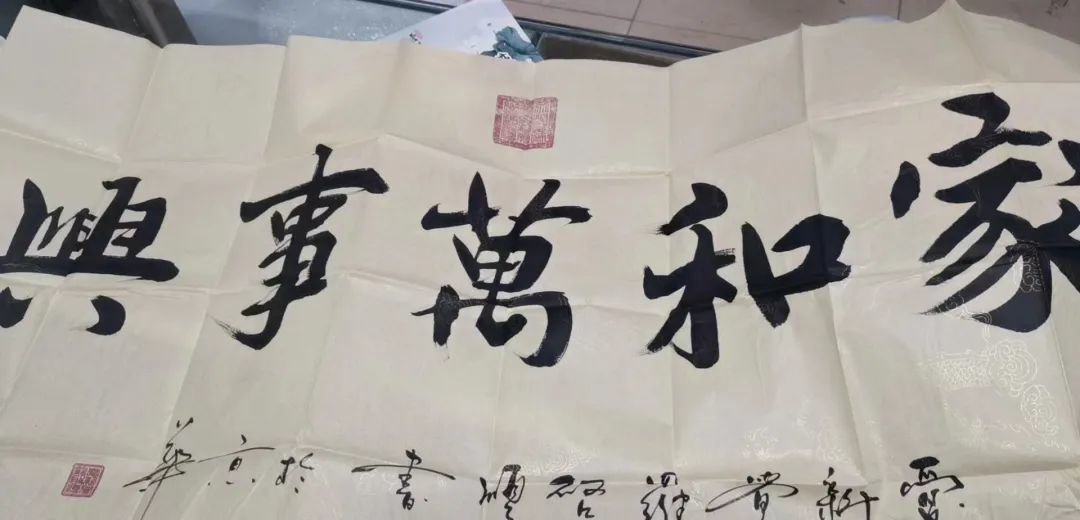 家和萬事興
愛新覺羅啓書於京華